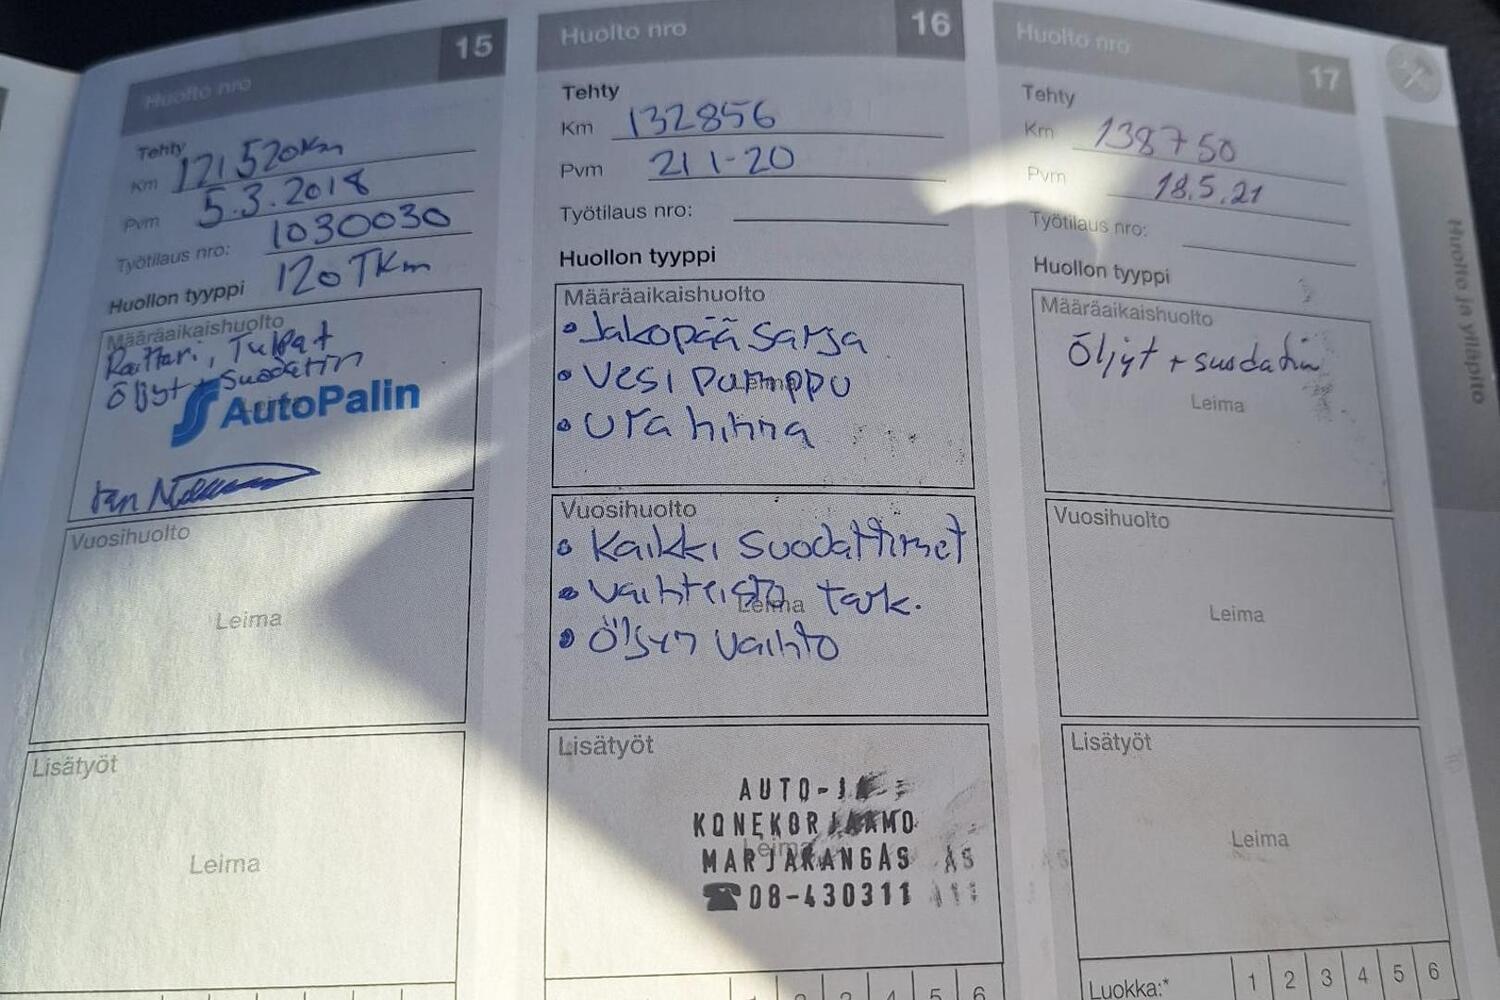 Huolto nro 15
Tehty
Km 121520Km
Pvm 5.3.2018
Työtilaus nro: 1030030
Huollon tyyppi 120 TKm
Määräaikaishuolto
Raittari, Tulpat
Öljyt + Suodatin
AutoPalin
Vuosihuolto
Leima
Lisätyöt
Leima
Huolto nro 16
Tehty
Km 132856
Pvm 21 1-20
Työtilaus nro:
Huollon tyyppi
Määräaikaishuolto
• Jakopää sarja
• Vesi pumppu
Leima
• Ura hihna
Vuosihuolto
• Kaikki suodattimet
• Vaihteisto tark.
Leima
• Öljyn vaihto
Lisätyöt
AUTO-
KONEKORJAAMO
Leima
MARJAKANGAS AS
☎ 08-430311 411
1 2 3 4 5 6
Huolto nro 17
Tehty
Km 138750
Pvm 18.5.21
Työtilaus nro:
Huollon tyyppi
Määräaikaishuolto
Öljyt + suodatin
Leima
Vuosihuolto
Leima
Lisätyöt
Leima
Luokka:* 1 2 3 4 5 6
Huolto ja ylläpito